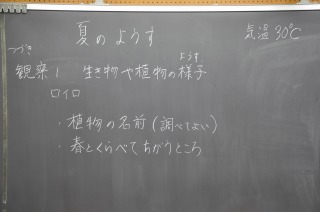 夏のようす
気温 30℃
つづき
観察1 生き物や植物の様子
ようす
ロイロ
・植物の名前(調べてよい)
・春とくらべてちがうところ